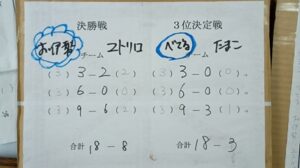 決勝戦 3位決定戦
お伊勢 チーム ユトリロ べてる チーム たまご
(3) 3-2 (2) (3) 3-0 (0)。
(3) 6-0 (0) (3) 6-0 (0)。
(3) 9-6 (2) (3) 9-3 (1)。
合計 18-8 合計 18-3